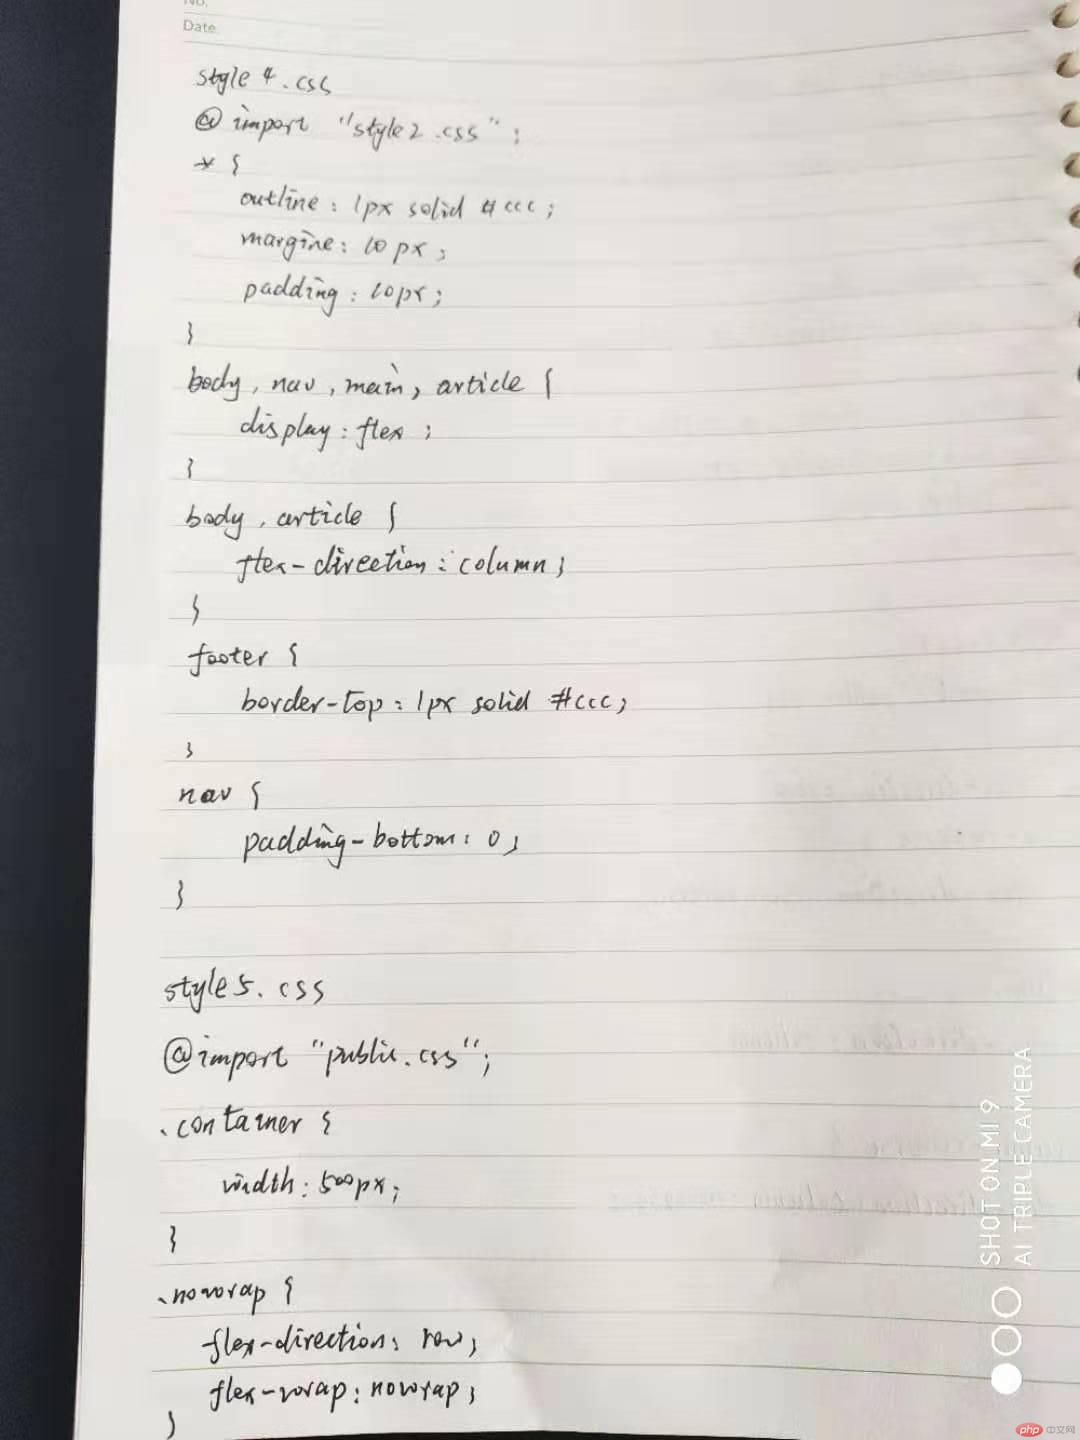 No.
Date.
style4.css
@import "style2.css";
* {
outline: 1px solid #ccc;
margine: 10px;
padding: 10px;
}
body, nav, main, article {
display: flex;
}
body, article {
flex-direction: column;
}
footer {
border-top: 1px solid #ccc;
}
nav {
padding-bottom: 0;
}
style5.css
@import "public.css";
.container {
width: 500px;
}
.nowrap {
flex-direction: row;
flex-wrap: nowrap;
}
SHOT ON MI 9
AI TRIPLE CAMERA
php 中文网